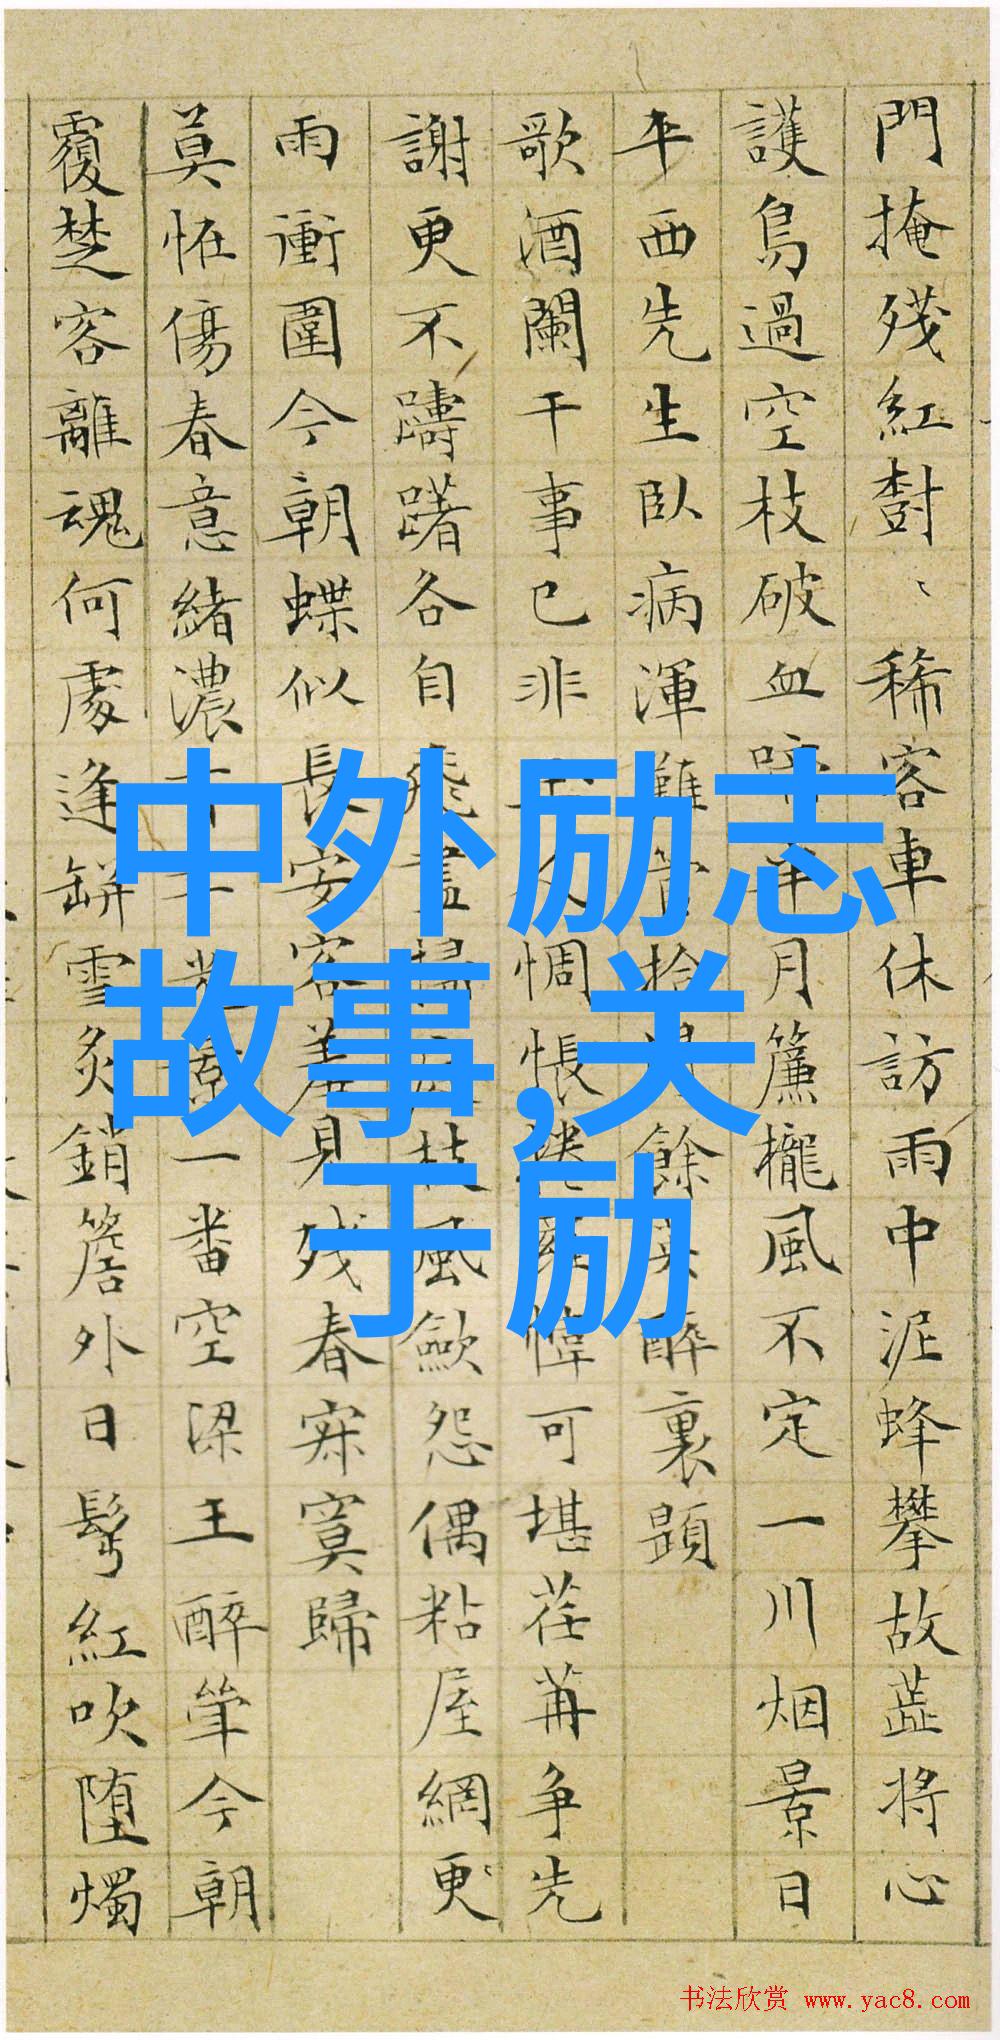 門掩殘紅樹〻稀客車休訪雨中泥蜂攀故蕋將心
護鳥過空枝破血月簾櫳風不定一川烟景日
平西先生臥病渾難餘英醉裏題
歌酒闌干事已非惆悵可堪荏苒争先
謝更不躊躇各自飛風歛怨偶粘屋網更
雨衝圍今朝蝶似長安客羞見残春寂寞歸
莫怪傷春意緒濃景一番空梁王醉筆今朝
覆楚客離魂何處逢缾雪炙銷簷外日髩紅吹墮燭
中外励志
故事,关
于励
书法欣赏 www.yac8.com